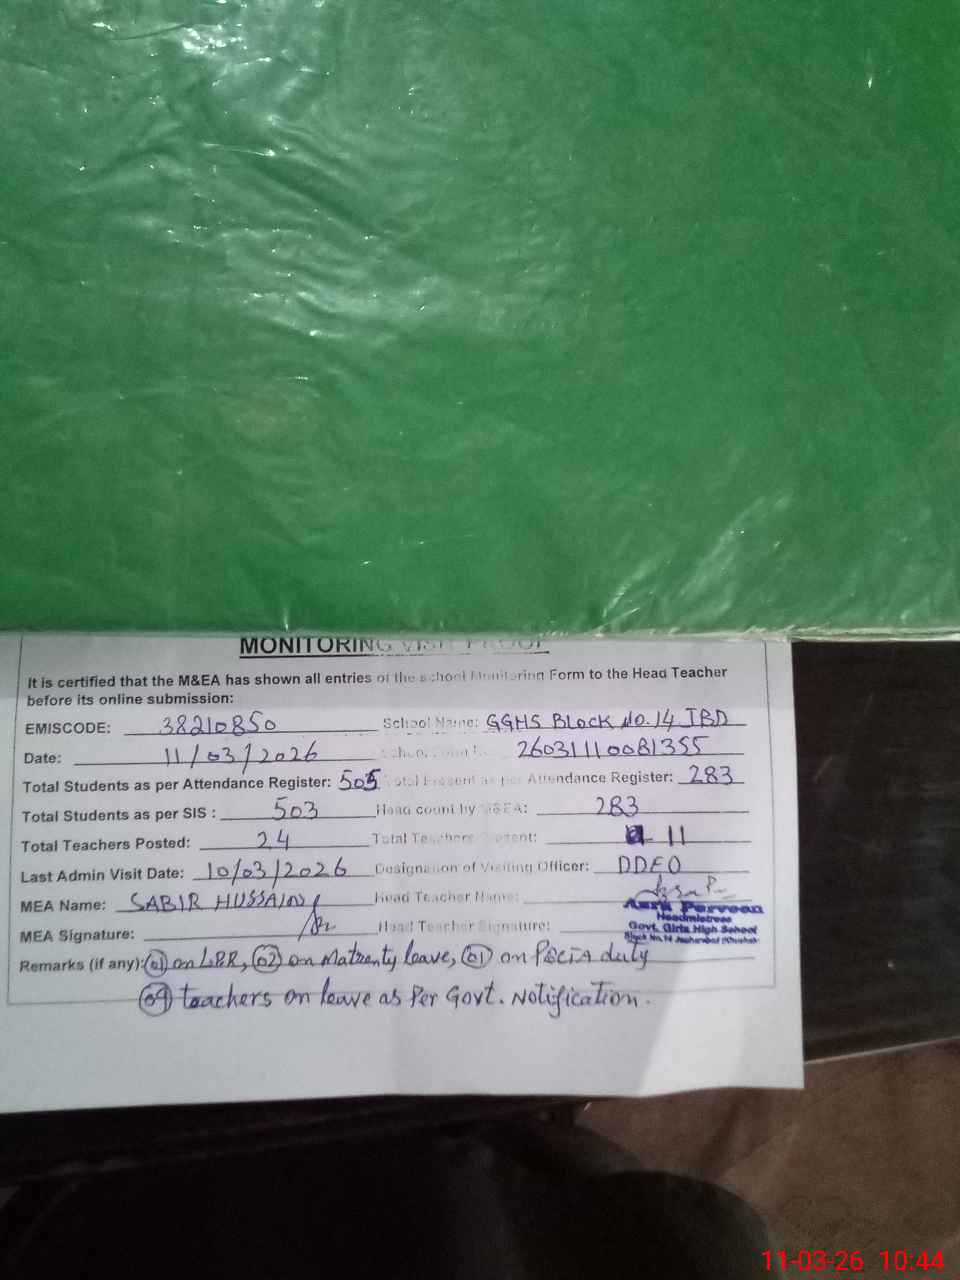 MONITORING VISIT PROOF
It is certified that the M&EA has shown all entries of the school Monitoring Form to the Head Teacher
before its online submission:
EMISCODE: 38210850 School Name: GGHS Block No. 14 JBD
Date: 11/03/2026 26031110081355
Total Students as per Attendance Register: 505 Total Present as per Attendance Register: 283
Total Students as per SIS : 503 Head count by M&EA: 283
Total Teachers Posted: 24 Total Teachers Present: 11
Last Admin Visit Date: 10/03/2026 Designation of Visiting Officer: DDEO
MEA Name: SABIR HUSSAIN Head Teacher Name:
Asra Parveen
Headmistress
MEA Signature: Head Teacher Signature:
Govt. Girls High School
Block No.14
Remarks (if any): 01 on LPR, 02 on Matrenty leave, 01 on duty
09 teachers on leave as Per Govt. Notification.
11-03-26 10:44